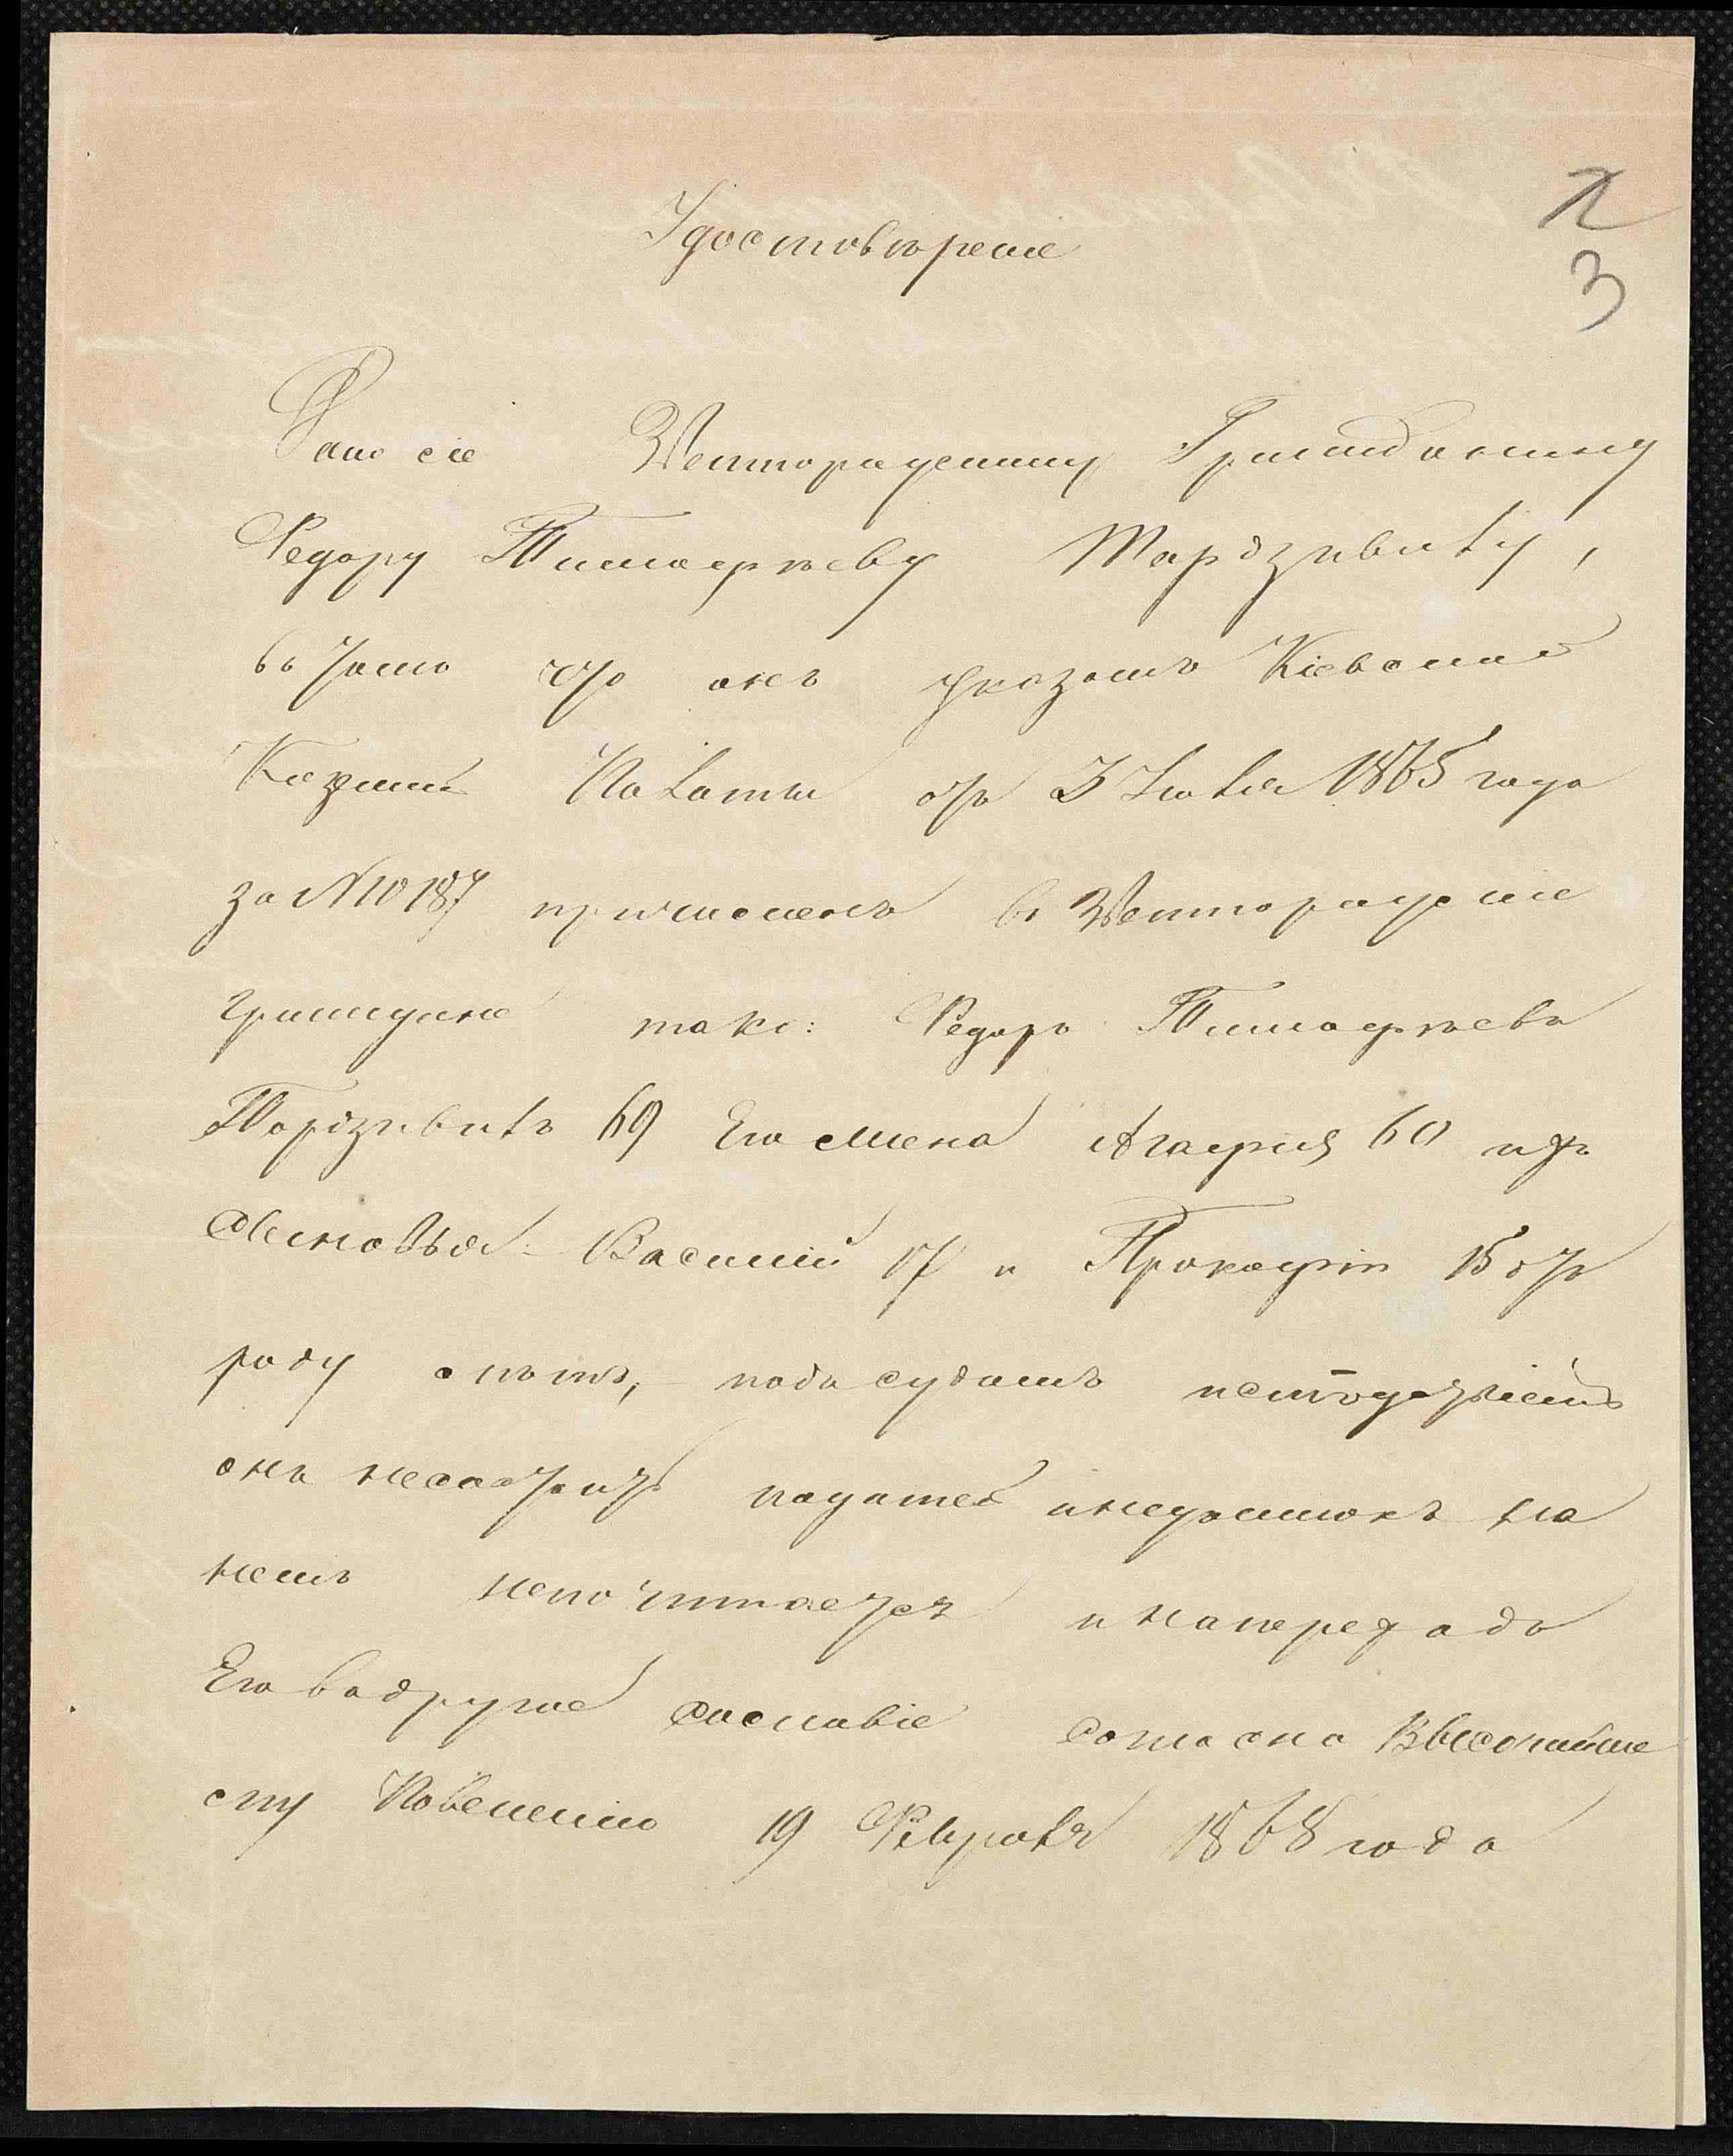 3
Удостовѣреніе
Дано сіе Звенигородскому Гражданину
Федору Тимофѣеву
въ томъ что онъ указомъ Кіевской
Казенной Палаты отъ 3 Іюля 1865 года
за N 10187 причисленъ въ Звенигородскіе
граждане такъ: Федоръ Тимофѣевъ
69 Его жена Агафія 60 ихъ
сыновья: Василій 17 и Прокофій 15 отъ
роду лѣтъ, подъ судомъ и слѣдствіемъ
онъ несостоитъ податей инедоимокъ на
немъ непочитается и
Его вадругое сословіе согласно Высочайше
ому Повеленію 19 Февраля 1868 года